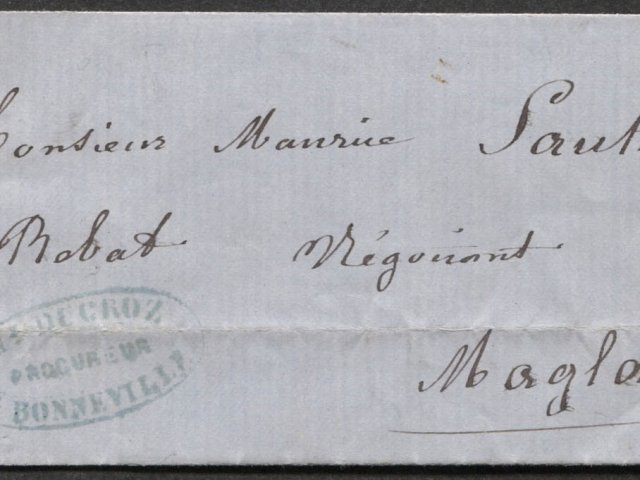 onsieur Maurice Saut
Rebat Négociant
Magla
DUCROZ
PROCUREUR
BONNEVILLE